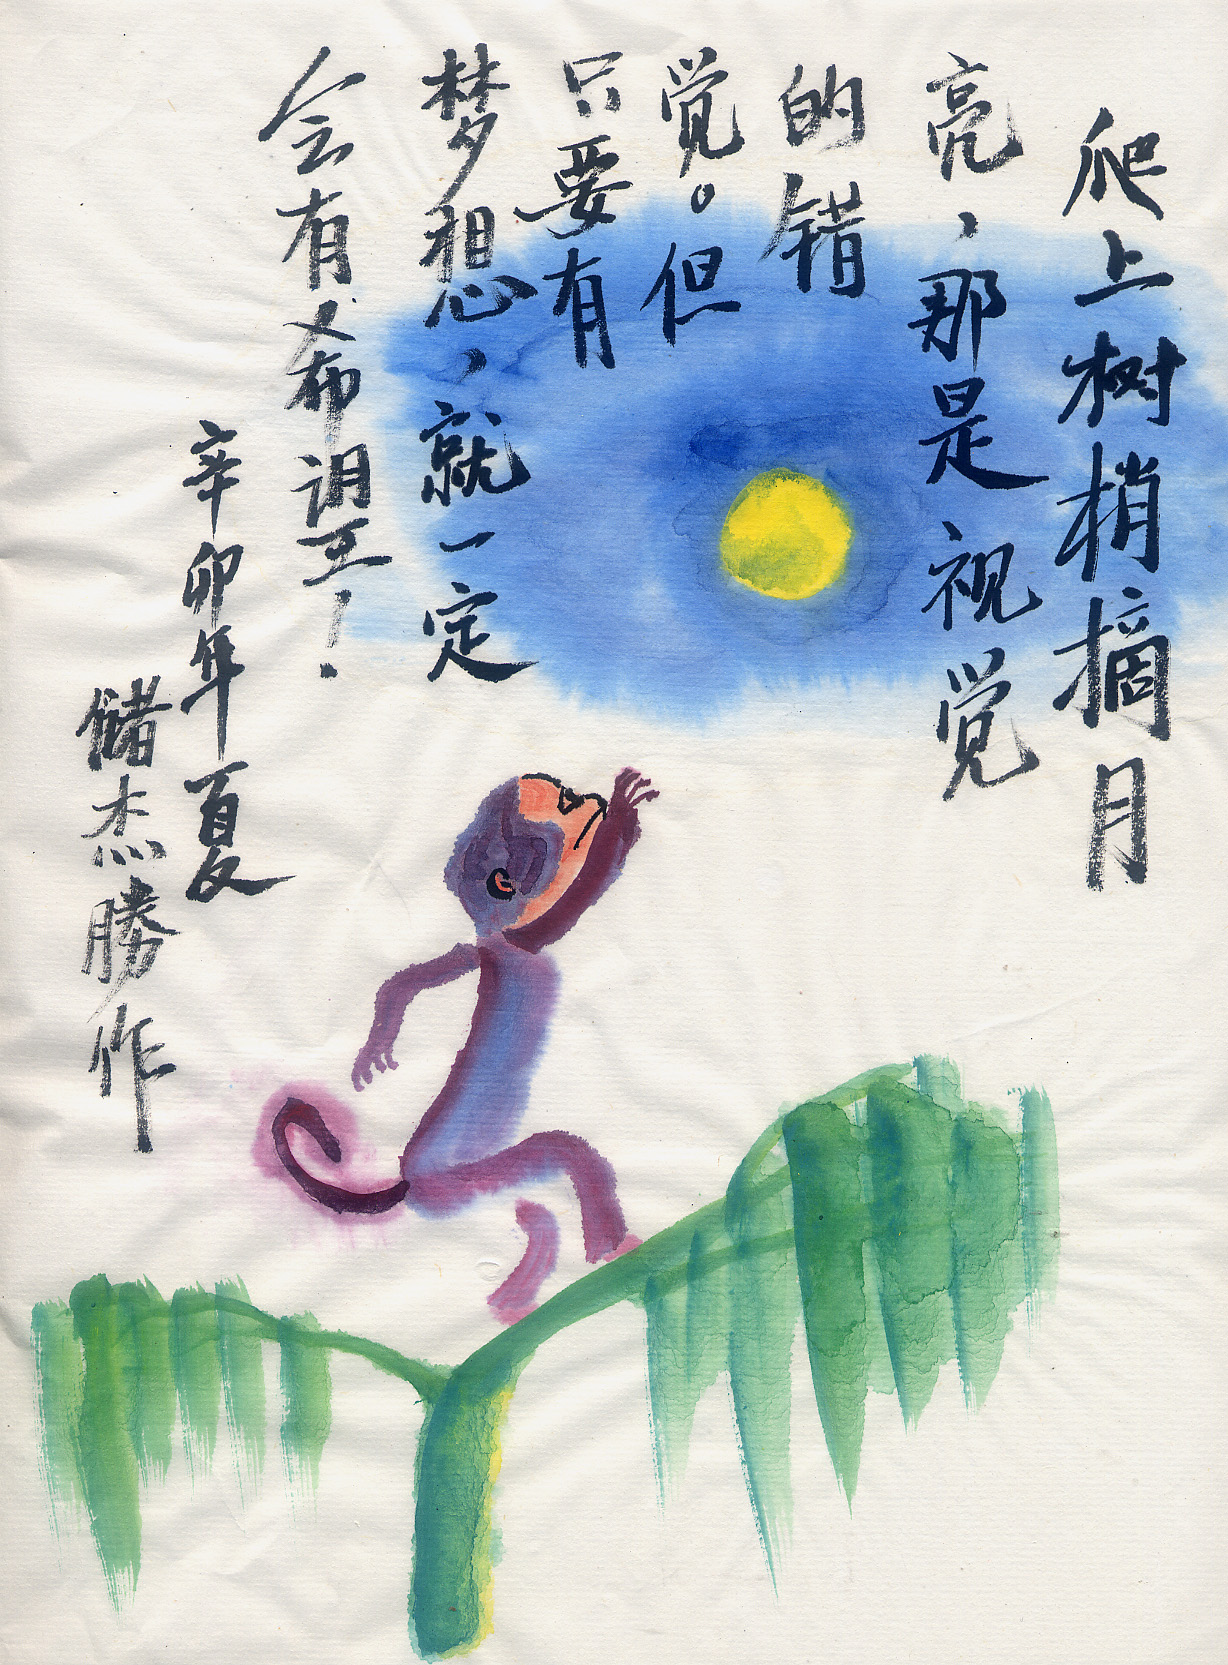 爬上树梢摘月
亮，那是视觉
的错
觉。但
只要有
梦想，就一定
会有希望！
辛卯年夏
储杰勝作